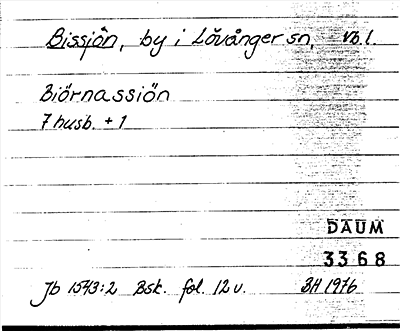 Bissjön, by i Lövånger sn, Vb l.
Biörnassiön
7 husb. + 1
DAUM
3368
Jb 1543:2 Bsk. fol. 12 v. BH 1976